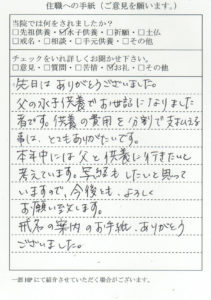 住職への手紙(ご意見を願います。)
当院では何をされましたか?
□先祖供養・☑水子供養・□祈願・□土仏
□戒名・□相談・□手元供養・□その他
チェックをいれ詳しくお聞かせ下さい。
□意見・□質問・□苦情・☑お礼・□その他
先日は ありがとうございました。
父の水子供養でお世話になりました
者です。供養の費用を分割で支払える
事は、とてもありがたいです。
本年中には父と供養に行きたいと
考えています。写経もしたいと思って
いますので、今後も、よろしく
お願い致します。
戒名の案内のお手紙、ありがとう
ございました。
一部HPにて紹介させていただく場合がございます。